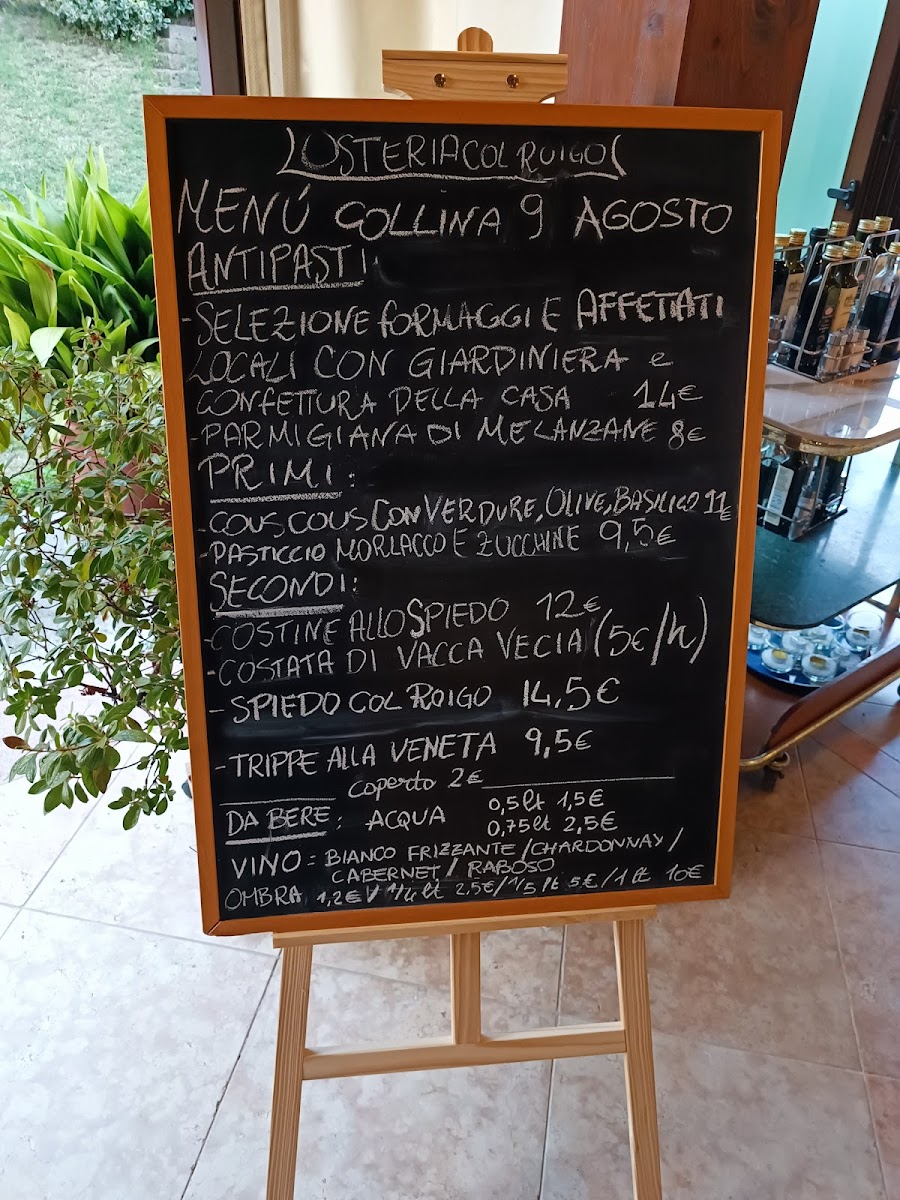 LOSTERIA COL ROIGO
MENÚ COLLINA 9 AGOSTO
ANTIPASTI
-SELEZIONE FORMAGGI E AFFETATI
LOCALI CON GIARDINIERA e
CONFETTURA DELLA CASA 14€
-PARMIGIANA DI MELANZANE 8€
PRIMI:
-COUS COUS CON VERDURE, OLIVE, BASILICO 11€
-PASTICCIO MORLACCO E ZUCCHINE 9,5€
SECONDI:
-COSTINE ALLO SPIEDO 12€
-COSTATA DI VACCA VECIA (5€/h)
-SPIEDO COL ROIGO 14,5€
-TRIPPE ALLA VENETA 9,5€
coperto 2€
DA BERE: ACQUA 0,5lt 1,5€
0,75lt 2,5€
VINO= BIANCO FRIZZANTE/CHARDONNAY/
CABERNET/ RABOSO
OMBRA 1,2€/ 1/4lt 2,5€/ 1/5lt 5€/1lt 10€